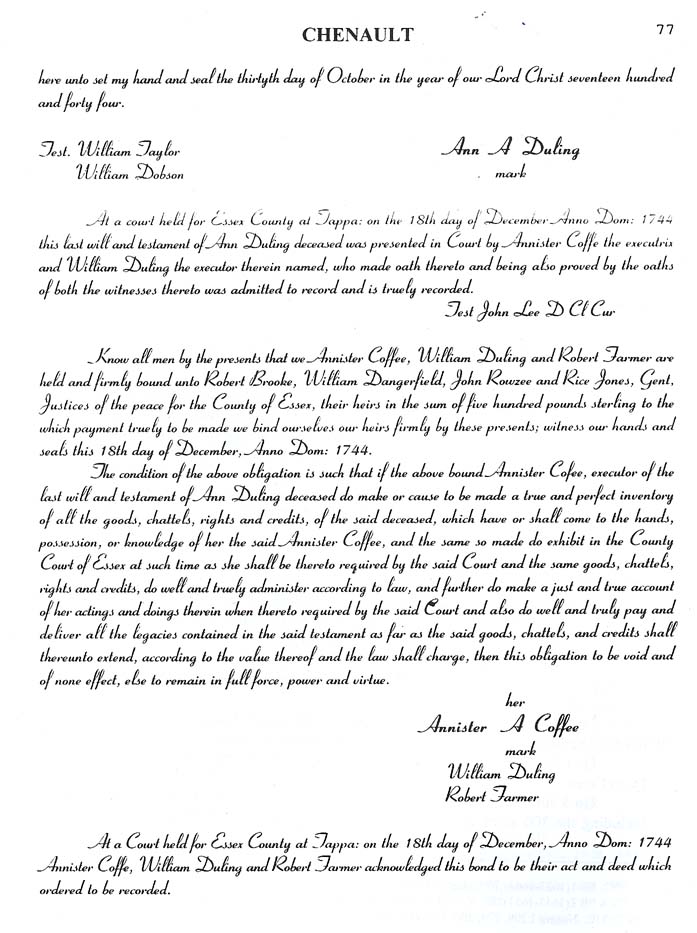 CHENAULT 77
here unto set my hand and seal the thirtyth day of October in the year of our Lord Christ seventeen hundred
and forty four.
Test. William Taylor Ann A Duling
William Dobson mark
At a court held for Essex County at Tappa: on the 18th day of December Anno Dom: 1744
this last will and testament of Ann Duling deceased was presented in Court by Annister Coffe the executrix
and William Duling the executor therein named, who made oath thereto and being also proved by the oaths
of both the witnesses thereto was admitted to record and is truely recorded.
Test John Lee D Cl Cur
Know all men by the presents that we Annister Coffee, William Duling and Robert Farmer are
held and firmly bound unto Robert Brooke, William Dangerfield, John Rowzee and Rice Jones, Gent,
Justices of the peace for the County of Essex, their heirs in the sum of five hundred pounds sterling to the
which payment truely to be made we bind ourselves our heirs firmly by these presents; witness our hands and
seals this 18th day of December, Anno Dom: 1744.
The condition of the above obligation is such that if the above bound Annister Cofee, executor of the
last will and testament of Ann Duling deceased do make or cause to be made a true and perfect inventory
of all the goods, chattels, rights and credits, of the said deceased, which have or shall come to the hands,
possession, or knowledge of her the said Annister Coffee, and the same so made do exhibit in the County
Court of Essex at such time as she shall be thereto required by the said Court and the same goods, chattels,
rights and credits, do well and truely administer according to law, and further do make a just and true account
of her actings and doings therein when thereto required by the said Court and also do well and truly pay and
deliver all the legacies contained in the said testament as far as the said goods, chattels, and credits shall
thereunto extend, according to the value thereof and the law shall charge, then this obligation to be void and
of none effect, else to remain in full force, power and virtue.
her
Annister A Coffee
mark
William Duling
Robert Farmer
At a Court held for Essex County at Tappa: on the 18th day of December, Anno Dom: 1744
Annister Coffe, William Duling and Robert Farmer acknowledged this bond to be their act and deed which
ordered to be recorded.